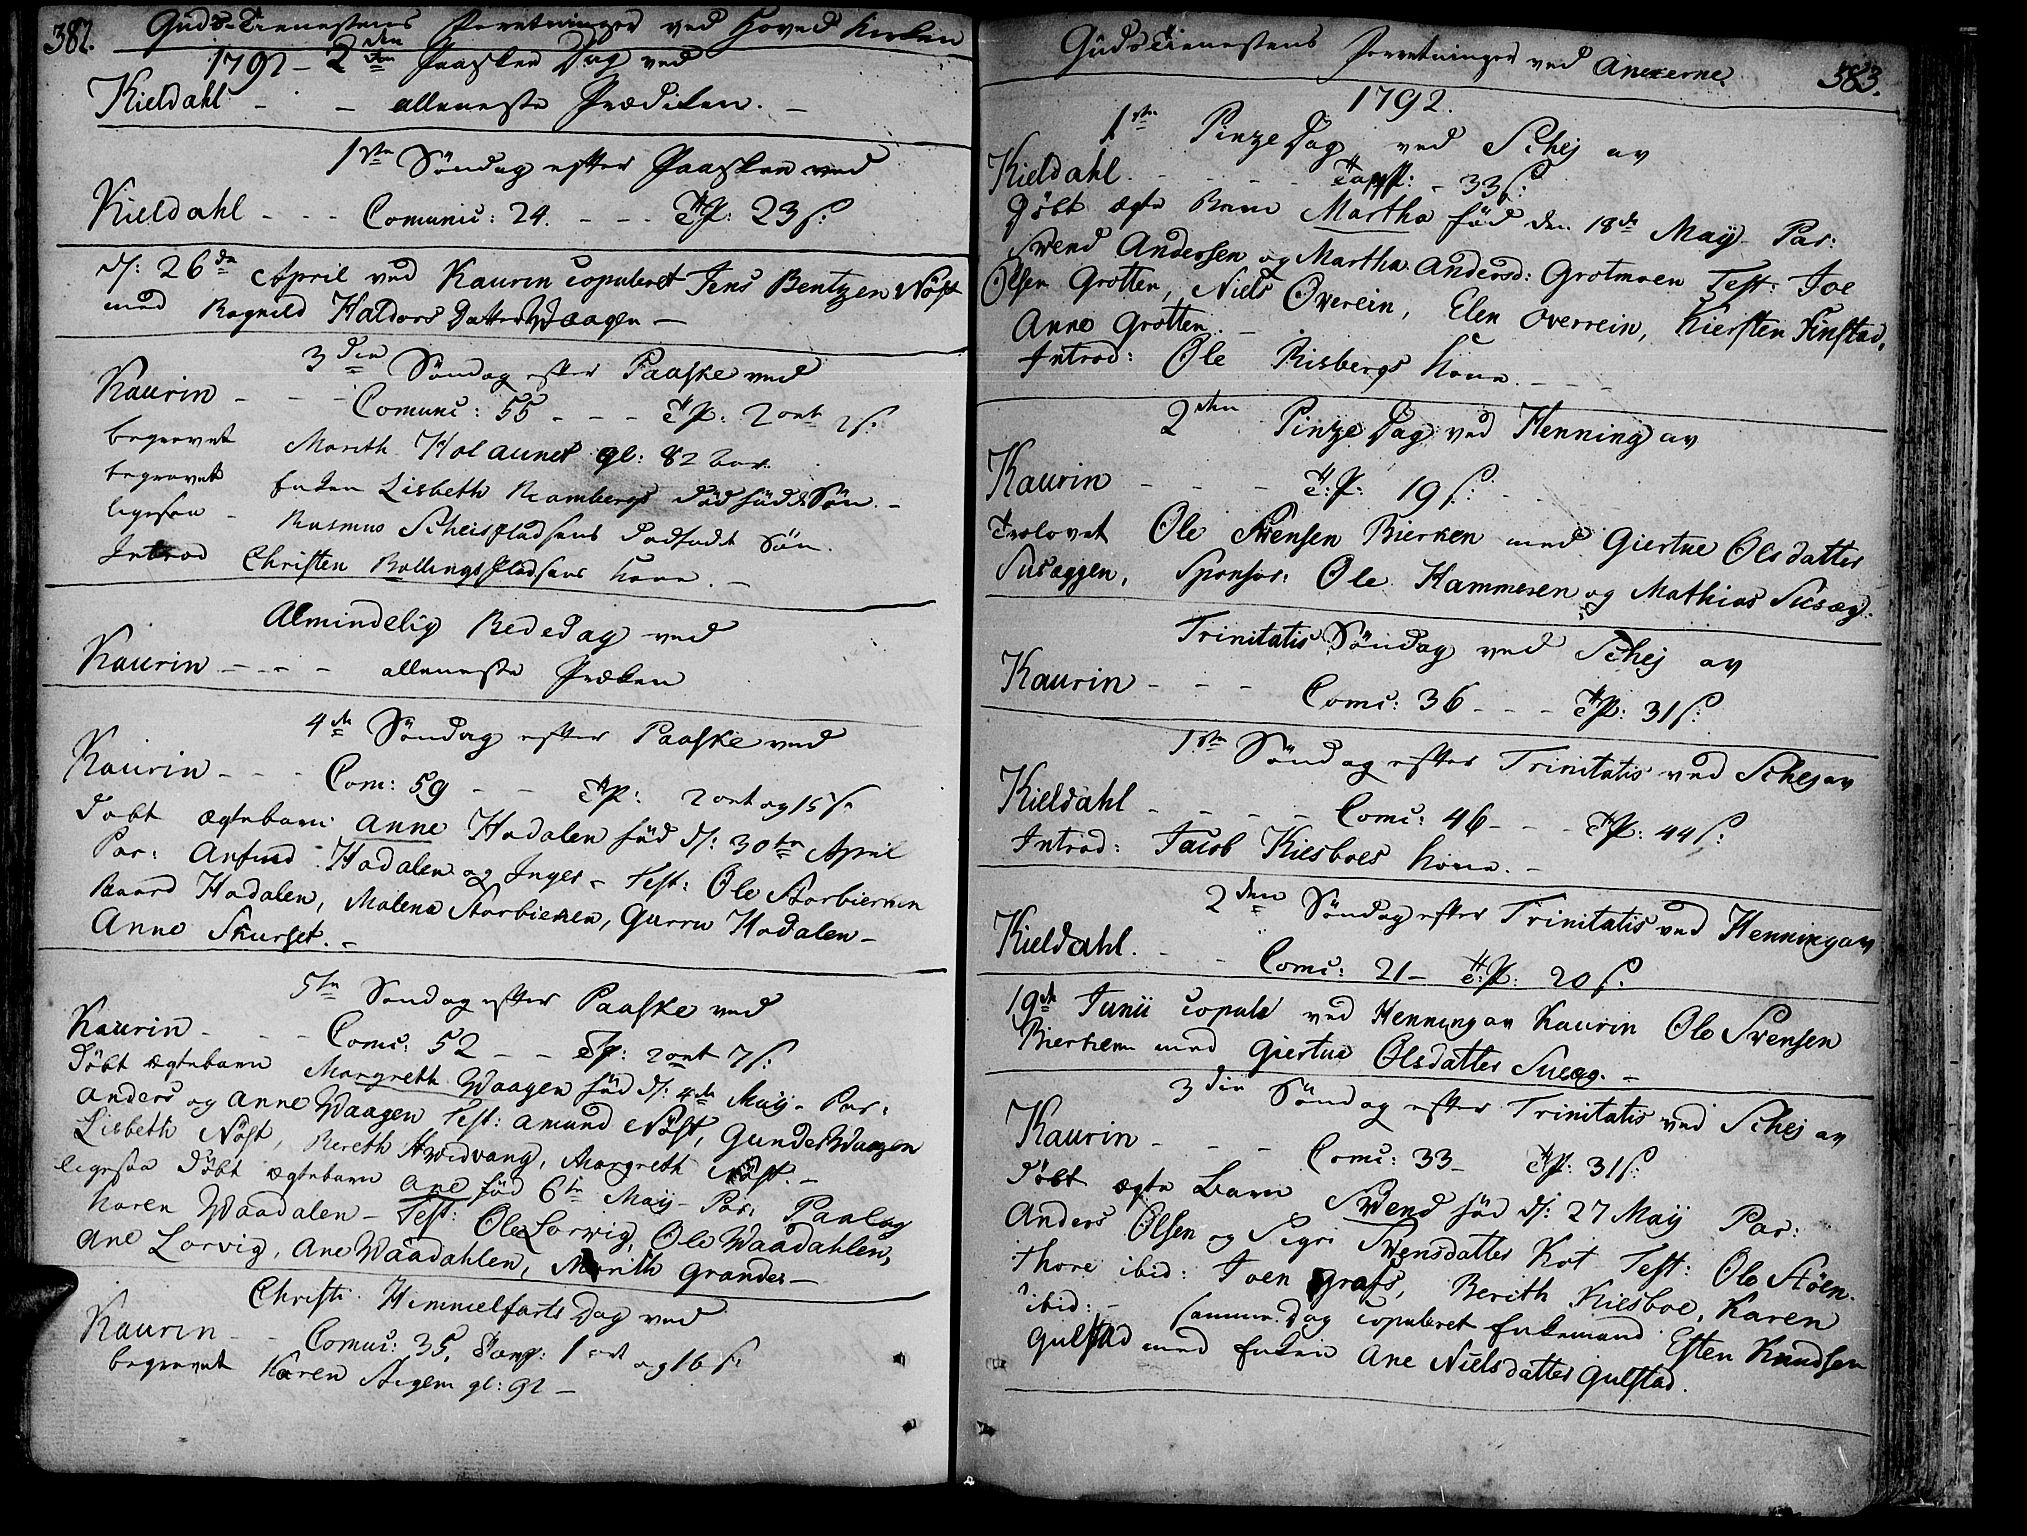 382. Guds-Tienestens Forretninger ved Hoved Kirken
1792 - 2den Paaske Dag ved
Kieldahl - - alleneste Prædiken. -
1ste Søndag efter Paasken ved
Kieldahl - - - Comunic: 24. - - - TP: 23 s.
d: 26de April ved Kaurin copuleret Jens Bentzen Nøst
med Ragnild Haldors Datter Waagen -
3die Søndag efter Paaske ved
Kaurin - - - Comunc: 55 - - - TP: 2 ort 2 s.
begravet Marith Holaunet gl: 82 aar.
begravet Enken Lisbeth Rambergs dødfødt Søn. -
ligesaa - Rasmus Scheispladsens dødfødt Søn.
Introd Christen Bollingspladsens Kone. -
Almindelig Bededag ved
Kaurin - - - - alleneste Præken
4de Søndag efter Paaske ved
Kaurin - - - Com: 59 - - TP: 2 ort og 15 s.
Døbt ægtebarn Anne Hadalen fød d: 30te April
Par: Anfind Hadalen og Inger - Test: Ole Storbierken
Baard Hadalen, Malena Storbierken, Gurru Hadalen -
Anne Skurset. -
5te Søndag efter Paaske ved
Kaurin - - - Comc: 52 - - TP: 2 ort 7 s.
Døbt ægtebarn Margreth Waagen fød d: 4de May - Par:
Anders og Anne Waagen Test: Amund Nøst, Gunder Waagen
Lisbeth Nøst, Bereth Hvidvang, Margreth Nøst. -
ligesaa Døbt ægtebarn Ane fød 6te May - Par: Paul og
Karen Waadalen - Test: Ole Lorvig, Ole Waadahlen,
Ane Lorvig, Ane Waadahlen, Marith Grandes -
Christi Himmelfarts Dag ved
Kaurin - - Comuc: 35, Tavp: 1 ort og 16 s.
begravet Karen Stigem gl: 92 -
Guds Tienestens Forretninger ved Anexerne. 383.
1792.
1ste Pinze Dag ved Schej av
Kieldahl. - - - - - Tavpl: - 33 s.
Døbt ægte Barn Martha fød den 18de May - Par:
Svend Andersen og Martha Andersd: Grotmoen Test: Joe
Olsen Grotten, Niels Overein, Elen Overrein, Kiersten Finstad,
Anne Grotten. -
Introd: Ole Risbergs Kone. - -
2den Pinze Dag ved Henning av
Kaurin - - - - T:P: 19 s. - -
Trolovet Ole Svensen Bierken med Giertrue Olsdatter
Susaggen, Sponsor: Ole Kammesen og Mathias Susæg:
Trinitatis Søndag ved Schej av
Kaurin - - - Comc: 36 - - - TP: 31 s.
1ste Søndag efter Trinitatis ved Schej av
Kieldahl - - - - - Comc: 46 - - - TP: 44 s.
Introd: Jacob Kiesboes Kone. -
2den Søndag efter Trinitatis ved Henning av
Kieldahl. - - - Comc: 21 - T:P: 20 s.
19de Junii copule ved Henning av Kaurin Ole Svensen
Bierken med Giertue Olsdatter Sueag. -
3die Søndag efter Trinitatis ved Schej av
Kaurin - - - Comc: 33 - TP: 31 s.
Døbt ægte Barn Swend fød d: 27 May Par:
Anders Olsen og Sigri Svensdatter Kot Test: Ole Støen.
Thore ibid: Joen Grafs, Berith Kiesboe, Karen
ibid: - samme Dag copuleret Enkemand Esten Knudsen
Gulstad med Enken Ane Nielsdatter Gulstad.